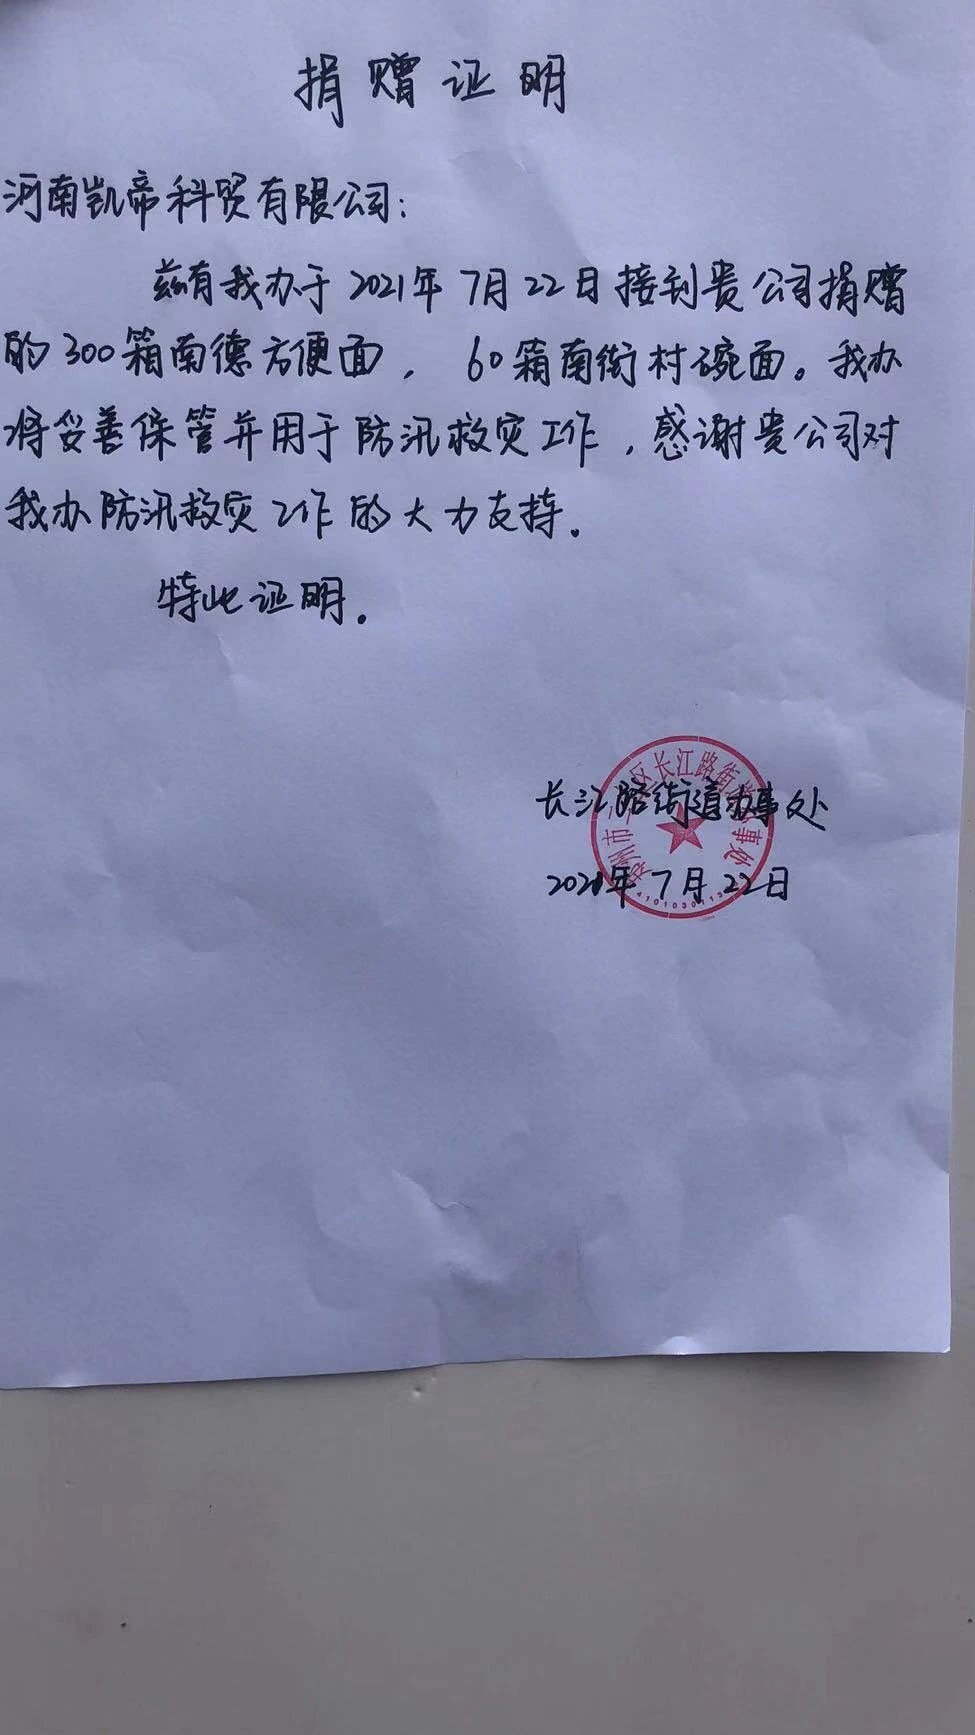 捐赠证明
河南凯帝科贸有限公司：
兹有我办于2021年7月22日接到贵公司捐赠
的300箱南德方便面，60箱南街村碗面。我办
将妥善保管并用于防汛救灾工作，感谢贵公司对
我办防汛救灾工作的大力支持。
特此证明。
长江路街道办事处
2021年7月22日
郑州市二七区长江路街道办事处